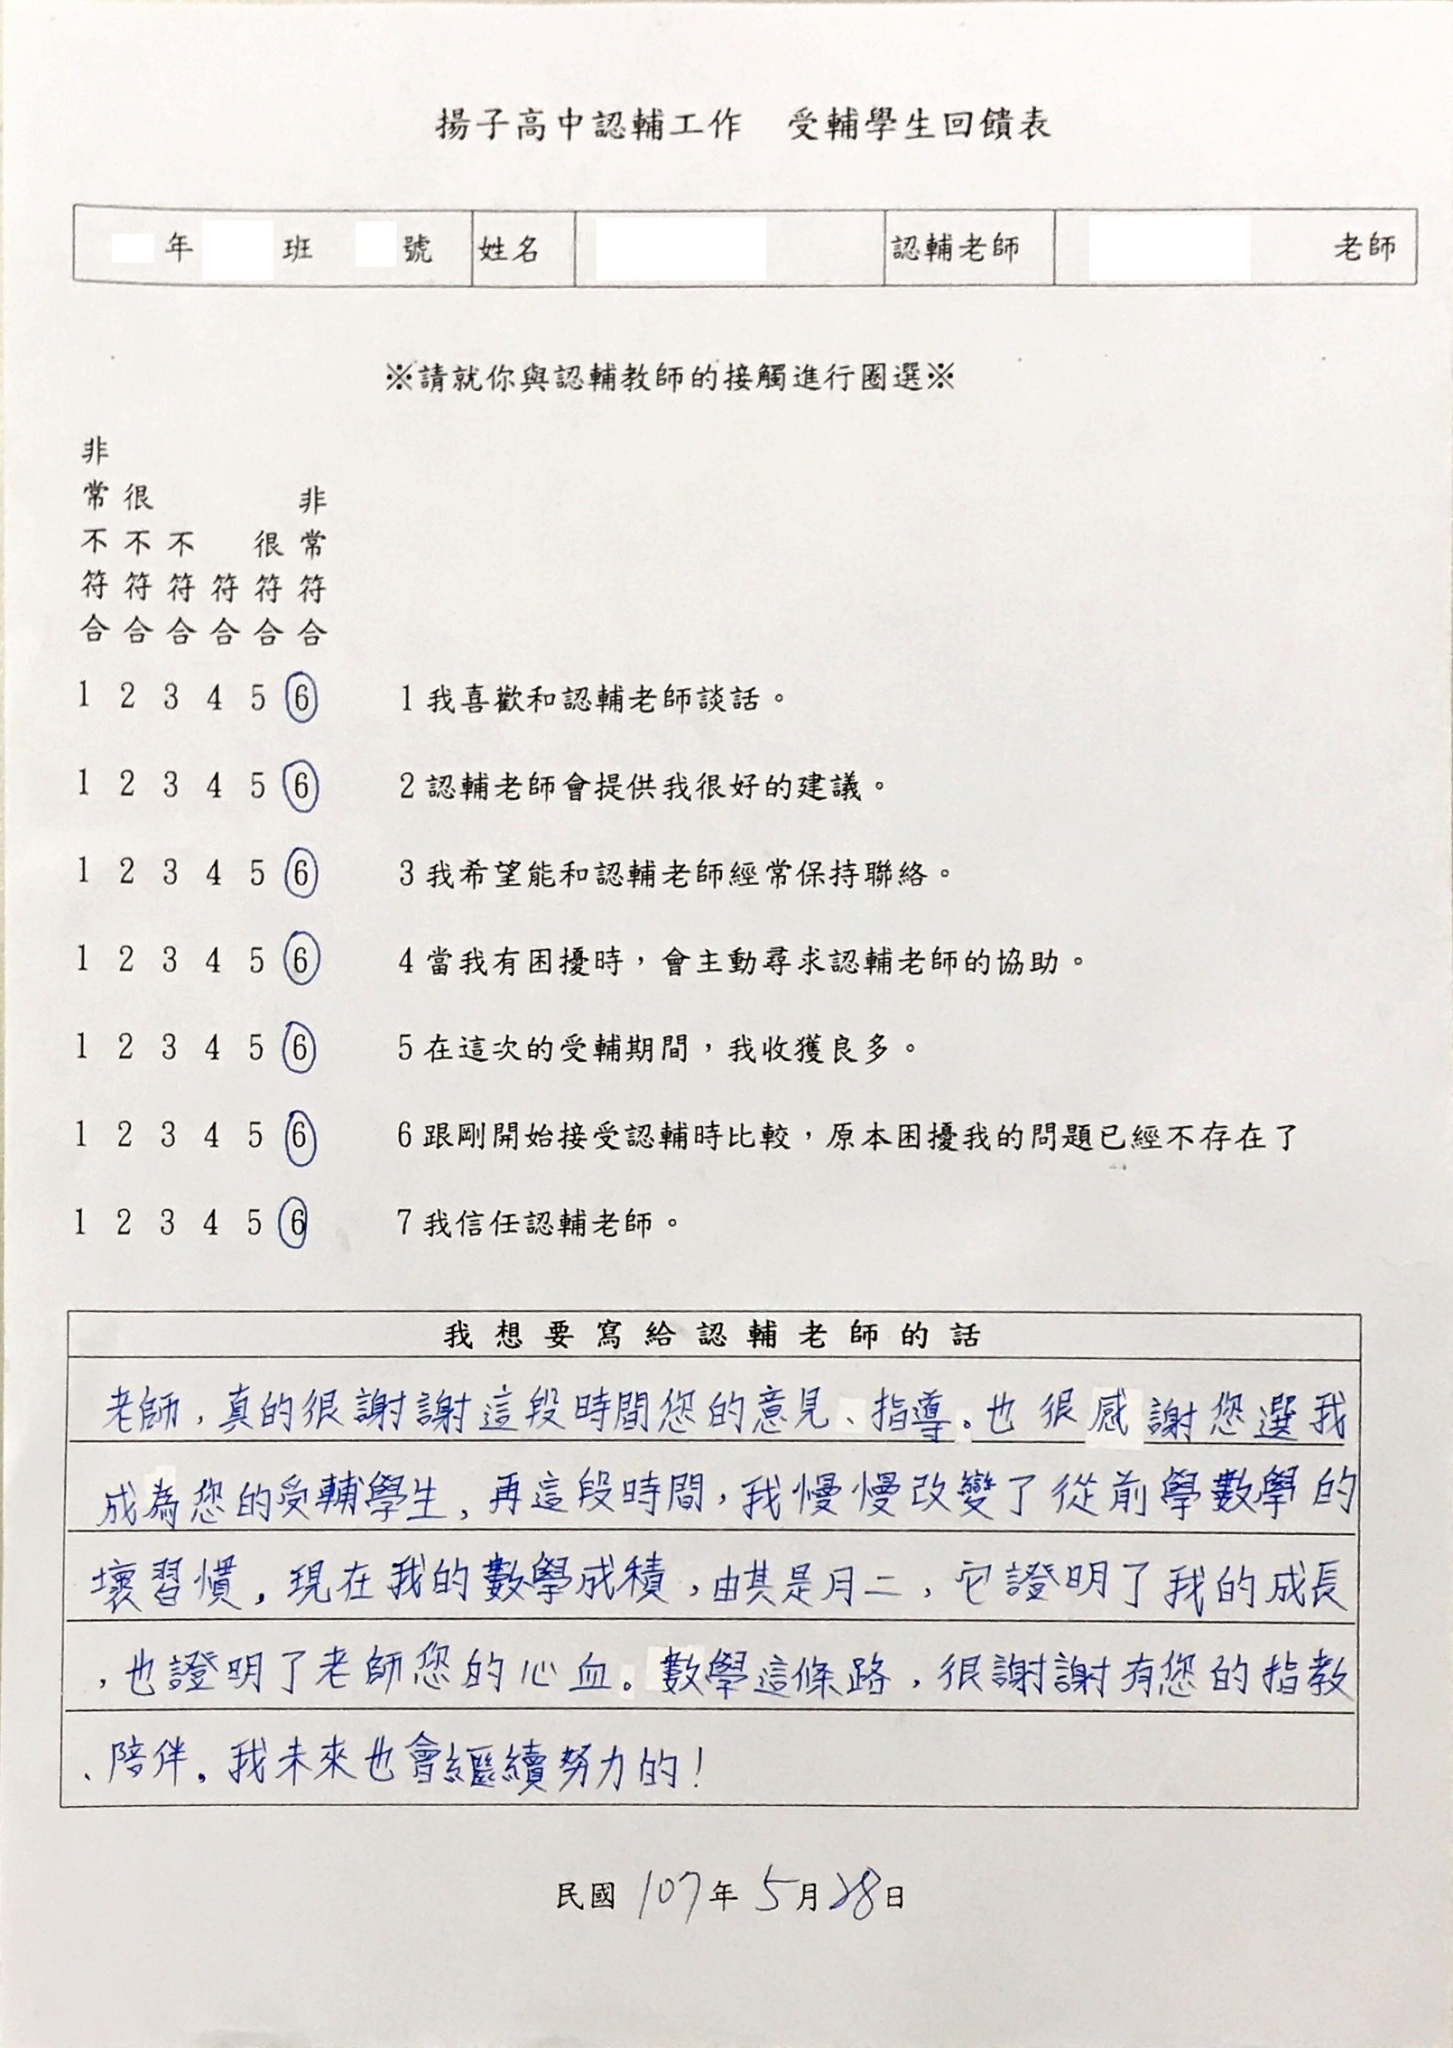 揚子高中認輔工作　受輔學生回饋表
年 班 號 姓名 認輔老師 老師
※請就你與認輔教師的接觸進行圈選※
非常不符合 很不符合 不符合 符合 很符合 非常符合
1 2 3 4 5 6 1 我喜歡和認輔老師談話。
1 2 3 4 5 6 2 認輔老師會提供我很好的建議。
1 2 3 4 5 6 3 我希望能和認輔老師經常保持聯絡。
1 2 3 4 5 6 4 當我有困擾時，會主動尋求認輔老師的協助。
1 2 3 4 5 6 5 在這次的受輔期間，我收獲良多。
1 2 3 4 5 6 6 跟剛開始接受認輔時比較，原本困擾我的問題已經不存在了
1 2 3 4 5 6 7 我信任認輔老師。
我想要寫給認輔老師的話
老師，真的很謝謝這段時間您的意見、指導。也很感謝您選我
成為您的受輔學生，再這段時間，我慢慢改變了從前學數學的
壞習慣，現在我的數學成積，由其是月二，它證明了我的成長
，也證明了老師您的心血。數學這條路，很謝謝有您的指教
、陪伴，我未來也會繼續努力的！
民國 107 年 5 月 28 日